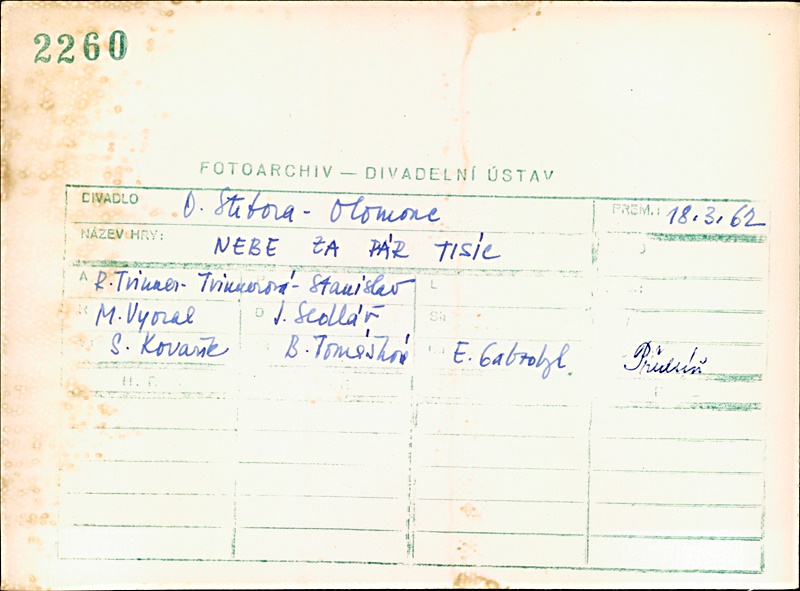 2260
FOTOARCHIV — DIVADELNÍ ÚSTAV
DIVADLO O. Stibora - Olomouc PREM.: 18.3.62
NÁZEV HRY: NEBE ZA PÁR TISÍC
A R. Trinner - Trinnerová - Stanislav L
M. Vyoral D J. Sedlář
S. Kovařík B. Tomášková E.
H. F.